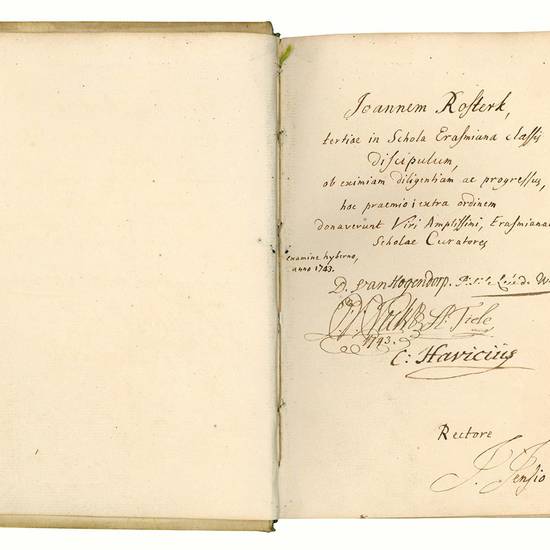 Joannem Rosterk,
tertiae in Schola Erasmiana classis
discipulum,
ob eximiam diligentiam ac progressus,
hoc praemio extra ordinem
donaverunt Viri Amplissimi, Erasmianae
Scholae Curatores
examine hyberno,
anno 1743.
D. van Hogendorp.
1743.
C: Havicius
Rectore
J. Jensio